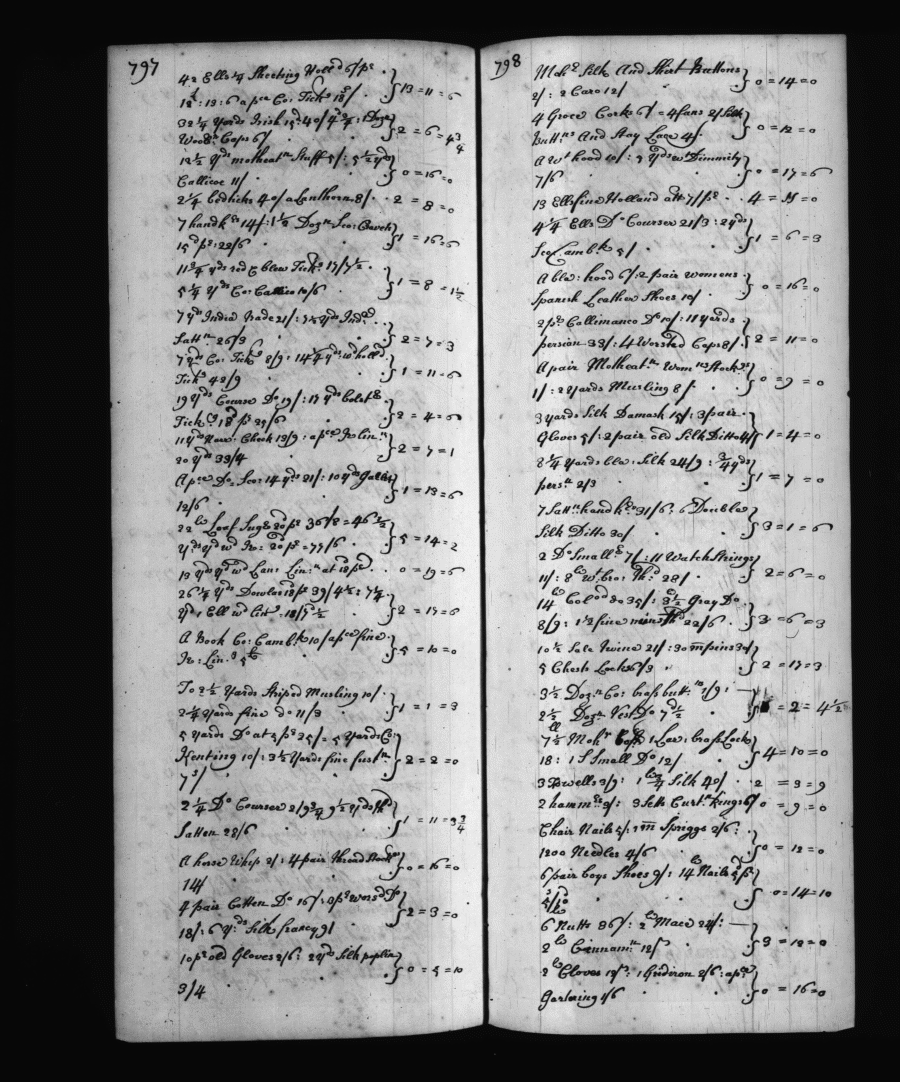 797
42 Ells 1/4 Sheeting Holld 6/ pr
12£:13:6 a pce Co: Tickg 18/ } 13=11=6
32 1/4 Yards Irish
Woosd Caps 6/ } 2=6=4 3/4
12 1/2 Yds motheatn Staff 5/: 5 1/2 yds
Callicoe 11/ } 0=16=0
2 1/4 bedticks 40/ a Lanthorn 8/ 2=8=0
7 handkfs 14/: 1 1/2 Dozn Sco:
15d ps: 22/6 } 1=16=6
11 3/4 yds red & blew Tickg 17/7 1/2
5 1/4 Yds Co: Callico 10/6 } 1=8=1 1/2
7 Yds India 21/: Yds Indn
Sattn 26/3 } 2=7=3
7 Yds Co: Tickg 8/9: 14 1/4 yds w holld
Tickg 42/9 } 1=11=6
19 Yds Course Do 19/: 17 Yds bolstr
Tickg 18d pr 25/6 } 2=4=6
11 Yds Narr. Check 13/9: a pce Ir: linn
20 Yds 33/4 } 2=7=1
A pce Do Sco: 14 Yds 21/: 10 Yds
12/6 } 1=13=6
22 lb Loaf Sugr 20d pr 36/8 = 46 1/2
Yds Yd wd Ir: 20d pr = 77/6 } 5=14=2
13 Yds Yd wd Lan: Linn at 18d pr 0=19=6
26 1/4 Yds Dowlas 18d pr 39/4 1/2: 7 1/4
Yds 1 Ell wd lin. 18/1 1/2 } 2=17=6
A Book Co: Cambk 10/ a pce fine
Ir: Lin: 5£ } 5=10=0
To 2 1/2 Yards Striped Musling 10/
2 1/4 Yards fine do 11/3 } 1=1=3
5 Yards Do at 35/ = 5 Yards Co
Kenting 10/: 3 1/2 Yards fine fustn
7s/ } 2=2=0
2 1/4 Do Courser 2/9 3/4 9 1/2 Yds
Satten 28/6 } 1=11=3 3/4
A horse Whip 2/: 4 pair thread Stocks
14/ } 0=16=0
4 pair Cotten Do 16/: 8 pr Worsd Do
18/: 6 Yds Silk 9/ } 2=3=0
10 pr old Gloves 2/6: 2 Yds Silk poplin
3/4 } 0=5=10
798
Mohr Silk And Shirt Buttons
2/: 2 Caro 12/ } 0=14=0
4 Groce Corks 6/ = 4 fans 2/ Silk
Buttns And Stay Lace 4/ } 0=12=0
A wt hood 10/: 3 Yds wt Dimmity
7/6 } 0=17=6
13 Ells fine Holland att 7/ pr 4=11=0
4 1/4 Ells Do Courser 21/3: 2 yds
Sco Cambk 5/ } 1=6=3
A bla: hood 6/: 2 pair womens
Spanish Leather Shoes 10/ } 0=16=0
2 prs Callimanco Do 10/: 11 Yards
persian 33/: 4 Worsted Caps 8/ } 2=11=0
A pair Motheatn Womns Stockgs
1/: 2 Yards Musling 8/ } 0=9=0
3 yards Silk Damask 15/: 3 pair
Gloves 5/: 2 pair old Silk Ditto 4/ } 1=4=0
8 1/4 Yards bla: Silk 24/9: 3/4 yds
persn 2/3 } 1=7=0
7 Sattn handkfs 31/6: 6 Double
Silk Ditto 30/ } 3=1=6
2 Do Smallr 7/: 11 Watch Strings
11/: 8 lb Wt bro: Thd 28/ } 2=6=0
14 lb Cold do 35/: 3 1/2 Gray Do
8/9: 1 1/2 fine Thd 22/6 } 3=6=3
10 1/2 Sale Twine 21/: 30 m pins 30/
5 Chests Locks 6/3 } 2=17=3
3 1/2 Dozn Co: brass buttns 1/9:
2 1/2 Dozn Vest Do 7d 1/2 } =2=4 1/2
7 1/2 Mohr 1 Lar: brass Lock
18: 1 Small Do 12/ } 4=10=0
3 Towells 3/9: 1 lb 3/4 Silk 40/ 2=3=9
2 hammrs 3/: 3 Setts Curtn Rings 6/ 0=9=0
Chair Nails 5/: 1 m Spriggs 2/6:
1200 Needles 4/6 } 0=12=0
6 pair boys Shoes 9/: 14 lb Nails 5d pr
5/10 } 0=14=10
6 lb Nutts 36/: 2 lb Mace 24/:
2 lb Cinnamn 12/ } 3=12=0
2 lb Cloves 12/: 1 Gridiron 2/6: a pce
Gartering 1/6 } 0=16=0